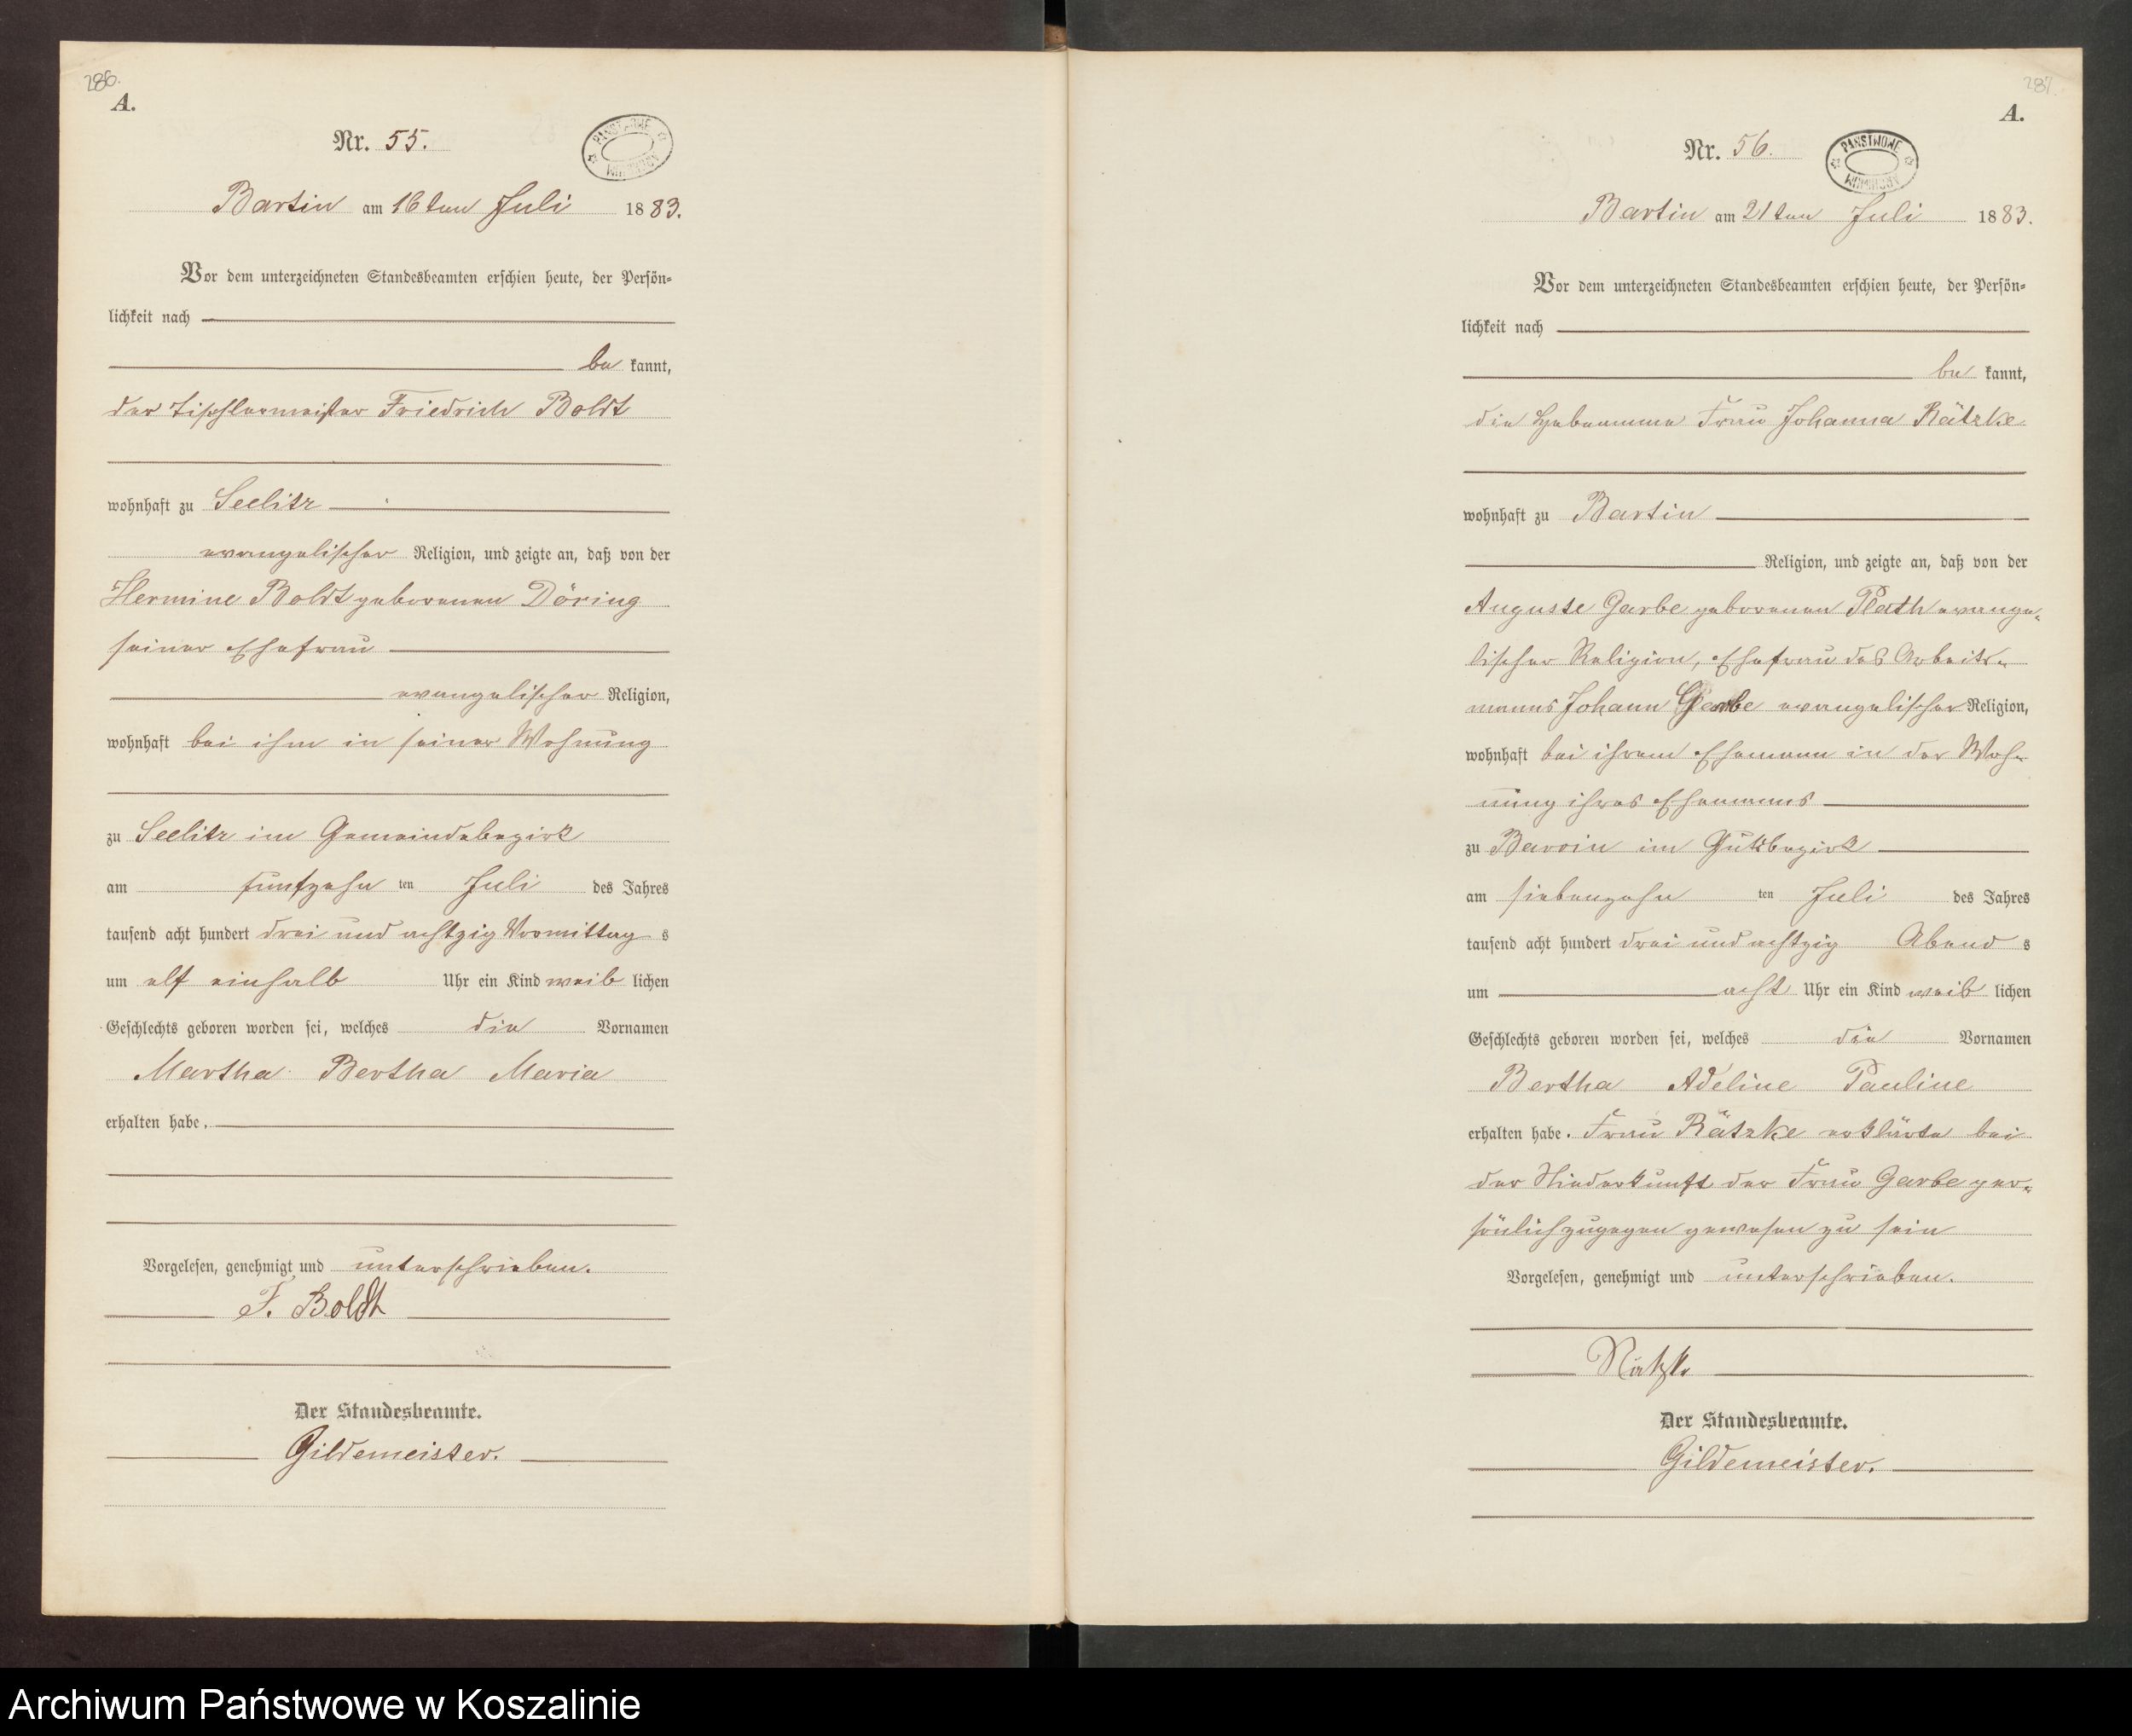 286.
A.
Nr. 55.
PAŃSTWOWE ARCHIWUM
Bartin am 16ten Juli 1883.
Vor dem unterzeichneten Standesbeamten erschien heute, der Persön=
lichkeit nach
be kannt,
der Tischlermeister Friedrich Boldt
wohnhaft zu Seelitz
evangelischer Religion, und zeigte an, daß von der
Hermine Boldt geborenen Döring
seiner Ehefrau
evangelischer Religion,
wohnhaft bei ihm in seiner Wohnung
zu Seelitz im Gemeindebezirk
am fünfzehn ten Juli des Jahres
tausend acht hundert drei und achtzig Vormittag s
um elf einhalb Uhr ein Kind weib lichen
Geschlechts geboren worden sei, welches die Vornamen
Martha Bertha Maria
erhalten habe.
Vorgelesen, genehmigt und unterschrieben.
F. Boldt
Der Standesbeamte.
Gildemeister.
287.
A.
Nr. 56.
PAŃSTWOWE ARCHIWUM
Bartin am 21ten Juli 1883.
Vor dem unterzeichneten Standesbeamten erschien heute, der Persön=
lichkeit nach
be kannt,
die Hebeamme Frau Johanna Rätzke
wohnhaft zu Bartin
Religion, und zeigte an, daß von der
Auguste Garbe geborenen Plath evange=
lischer Religion, Ehefrau des Arbeits=
manns Johann Garbe evangelischer Religion,
wohnhaft bei ihrem Ehemann in der Woh=
nung ihres Ehemanns
zu Barvin im Gutsbezirk
am siebenzehn ten Juli des Jahres
tausend acht hundert drei und achtzig Abend s
um acht Uhr ein Kind weib lichen
Geschlechts geboren worden sei, welches die Vornamen
Bertha Adeline Pauline
erhalten habe. Frau Rätzke erklärte bei
der Niederkunft der Frau Garbe per=
sönlich zugegen gewesen zu sein
Vorgelesen, genehmigt und unterschrieben.
Rätzke
Der Standesbeamte.
Gildemeister.
Archiwum Państwowe w Koszalinie